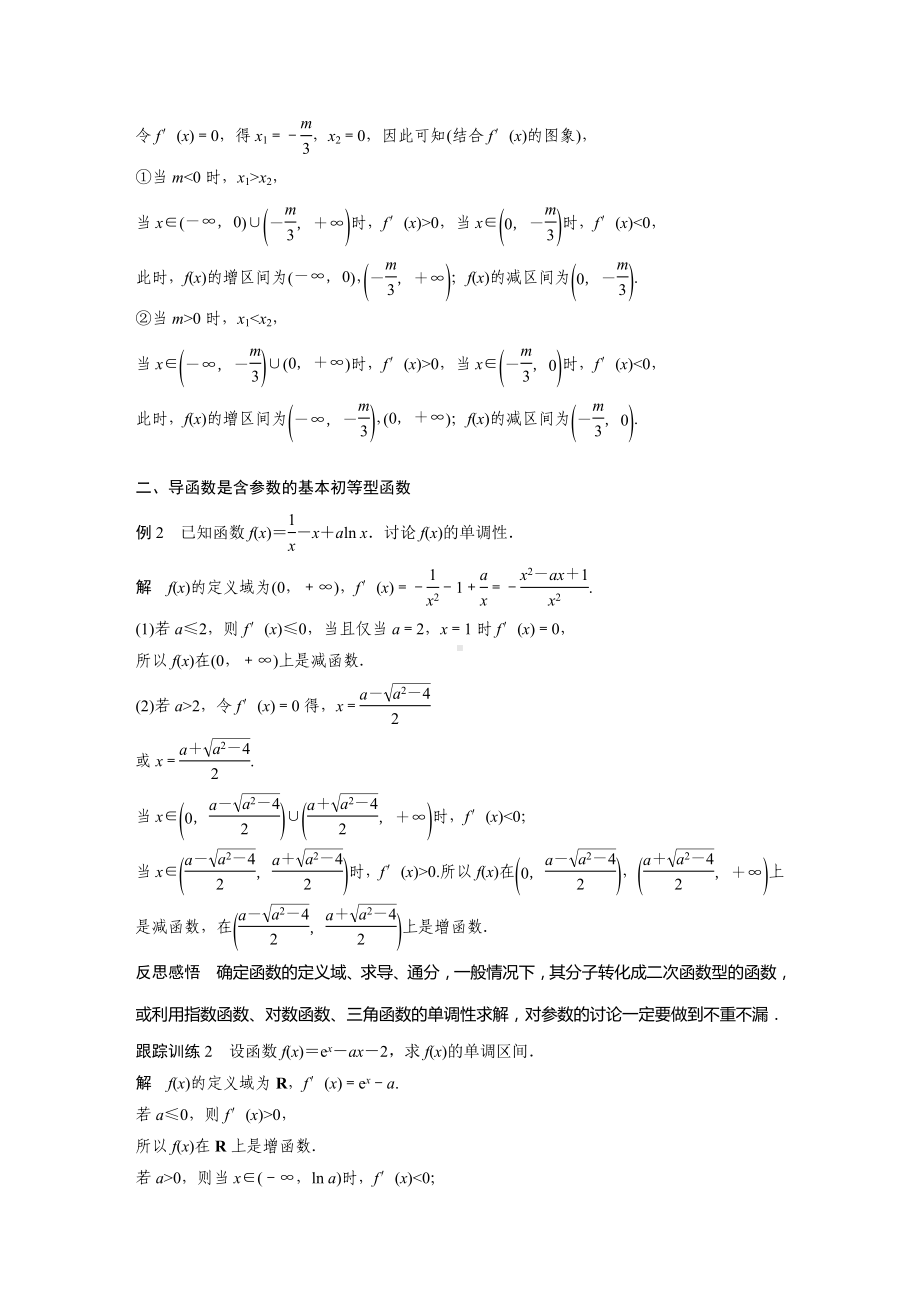 令 f′(x)＝0，得 x₁＝－m/3，x₂＝0，因此可知(结合 f′(x)的图象)，
①当 m<0 时，x₁>x₂，
当 x∈(－∞，0)∪(－m/3，＋∞)时，f′(x)>0，当 x∈(0，－m/3)时，f′(x)<0，
此时，f(x)的增区间为(－∞，0)，(－m/3，＋∞)；f(x)的减区间为(0，－m/3).
②当 m>0 时，x₁<x₂，
当 x∈(－∞，－m/3)∪(0，＋∞)时，f′(x)>0，当 x∈(－m/3，0)时，f′(x)<0，
此时，f(x)的增区间为(－∞，－m/3)，(0，＋∞)；f(x)的减区间为(－m/3，0).
二、导函数是含参数的基本初等型函数
例 2　已知函数 f(x)＝1/x－x＋aln x．讨论 f(x)的单调性．
解　f(x)的定义域为(0，＋∞)，f′(x)＝－1/x²－1＋a/x＝－(x²－ax＋1)/x².
(1)若 a≤2，则 f′(x)≤0，当且仅当 a＝2，x＝1 时 f′(x)＝0，
所以 f(x)在(0，＋∞)上是减函数．
(2)若 a>2，令 f′(x)＝0 得，x＝(a－√(a²－4))/2
或 x＝(a＋√(a²－4))/2.
当 x∈(0，(a－√(a²－4))/2)∪((a＋√(a²－4))/2，＋∞)时，f′(x)<0;
当 x∈((a－√(a²－4))/2，(a＋√(a²－4))/2)时，f′(x)>0.所以 f(x)在(0，(a－√(a²－4))/2)，((a＋√(a²－4))/2，＋∞)上
是减函数，在((a－√(a²－4))/2，(a＋√(a²－4))/2)上是增函数．
反思感悟　确定函数的定义域、求导、通分，一般情况下，其分子转化成二次函数型的函数，
或利用指数函数、对数函数、三角函数的单调性求解，对参数的讨论一定要做到不重不漏．
跟踪训练 2　设函数 f(x)＝eˣ－ax－2，求 f(x)的单调区间．
解　f(x)的定义域为 R，f′(x)＝eˣ－a.
若 a≤0，则 f′(x)>0，
所以 f(x)在 R 上是增函数．
若 a>0，则当 x∈(－∞，ln a)时，f′(x)<0;